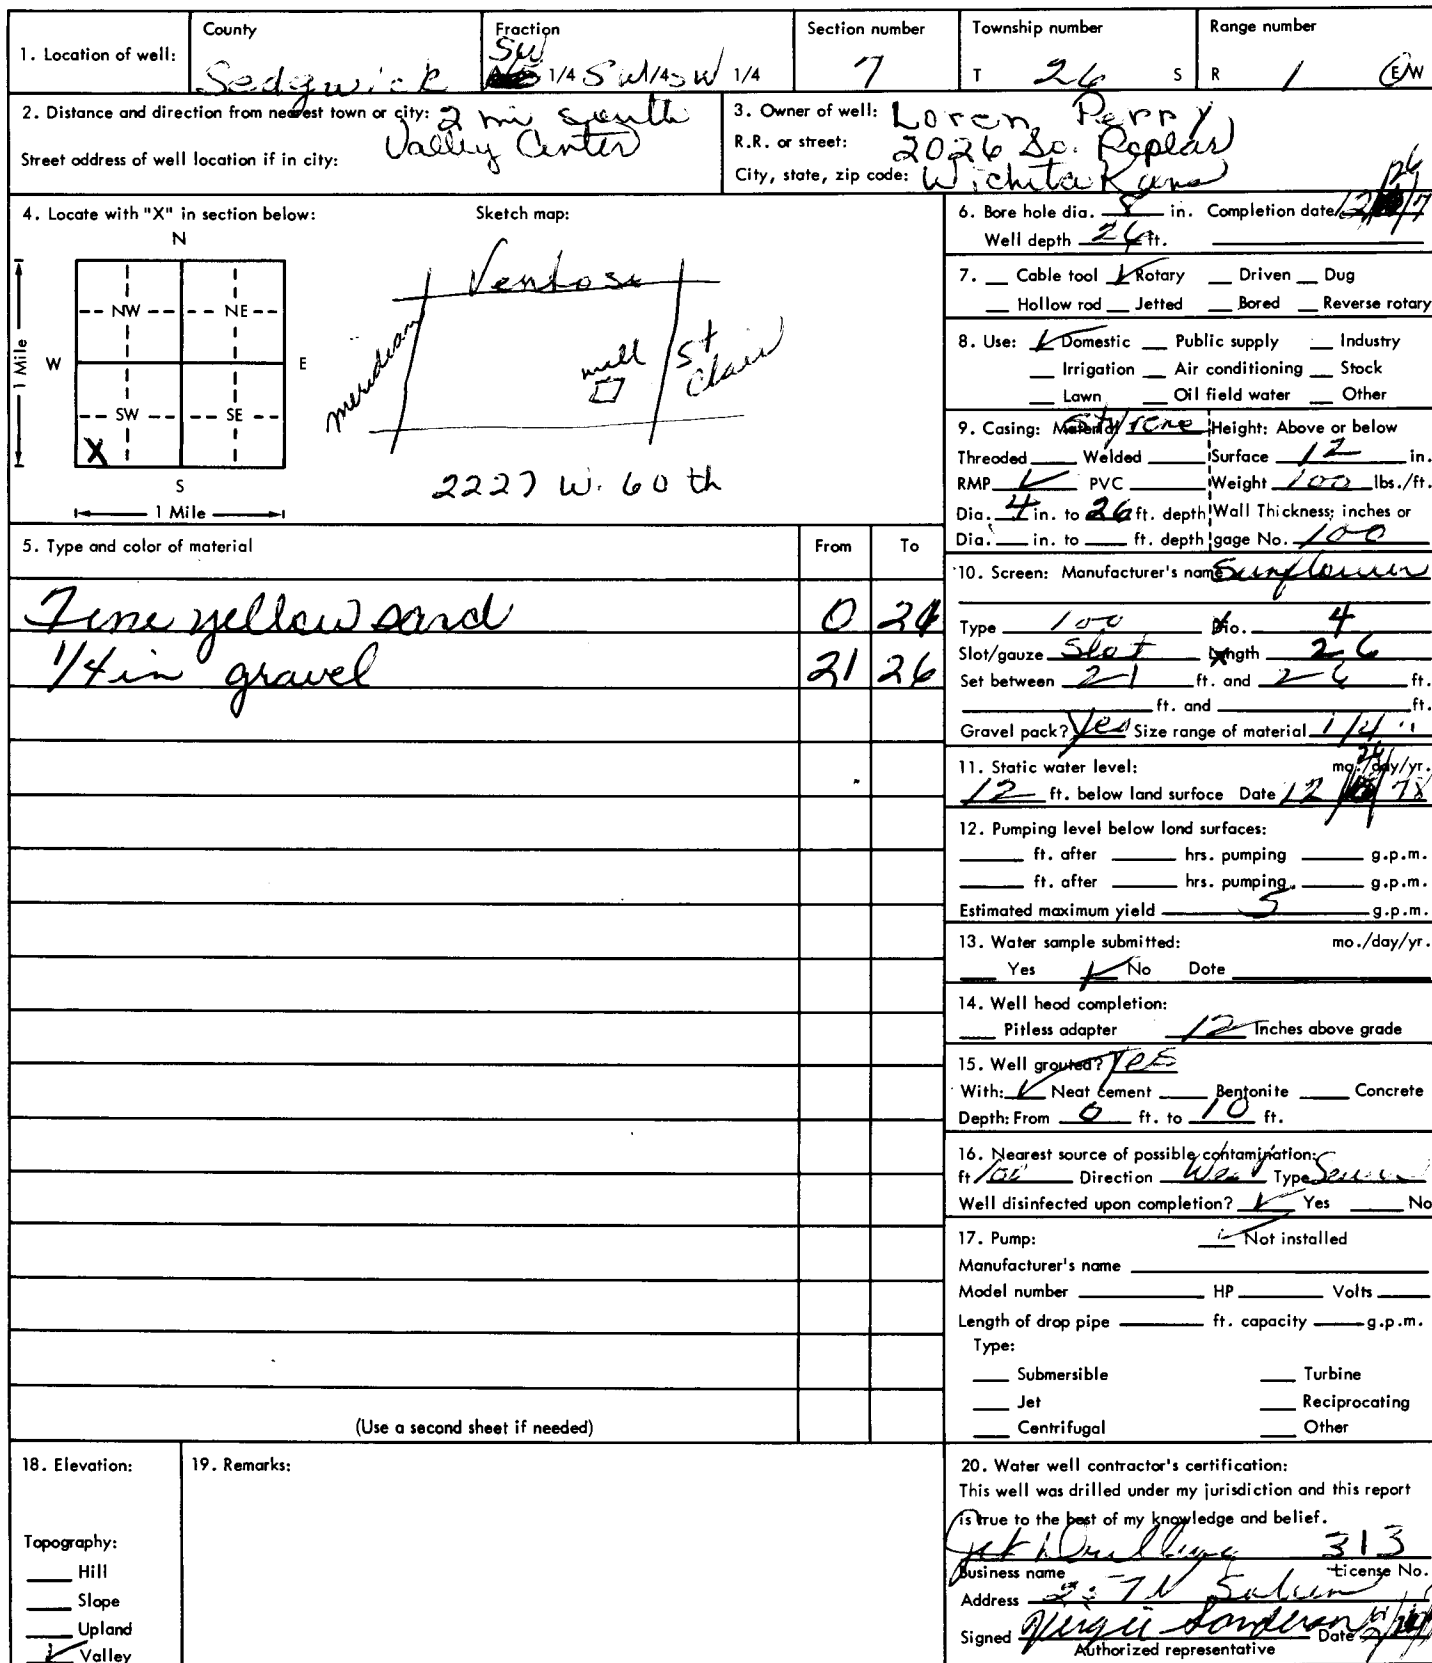 County Fraction Section number Township number Range number
1. Location of well: Sedgwick SW 1/4 SW 1/4 SW 1/4 7 T 26 S R 1 E/W
2. Distance and direction from nearest town or city: 2 mi south
Valley Center
Street address of well location if in city:
3. Owner of well: Loren Perry
R.R. or street: 2026 So. Poplar
City, state, zip code: Wichita Kans
4. Locate with "X" in section below: Sketch map:
N
NW NE
W E
SW SE
X
S
1 Mile
1 Mile
Ventosa
meridian
well
St Clair
2227 W. 60 th
5. Type and color of material From To
Fine yellow sand 0 21
1/4 in gravel 21 26
(Use a second sheet if needed)
6. Bore hole dia. 8 in. Completion date 12/26/7
Well depth 26 ft.
7. Cable tool Rotary Driven Dug
Hollow rod Jetted Bored Reverse rotary
8. Use: Domestic Public supply Industry
Irrigation Air conditioning Stock
Lawn Oil field water Other
9. Casing: Material Styrene Height: Above or below
Threaded Welded Surface 12 in.
RMP PVC Weight 100 lbs./ft.
Dia. 4 in. to 26 ft. depth Wall Thickness; inches or
Dia. in. to ft. depth gage No. 100
10. Screen: Manufacturer's name Sunflower
Type 100 Dia. 4
Slot/gauze Slot Length 26
Set between 21 ft. and 26 ft.
ft. and ft.
Gravel pack? Yes Size range of material 1/4"
11. Static water level: mo./day/yr.
12 ft. below land surface Date 12/26/78
12. Pumping level below land surfaces:
ft. after hrs. pumping g.p.m.
ft. after hrs. pumping g.p.m.
Estimated maximum yield 5 g.p.m.
13. Water sample submitted: mo./day/yr.
Yes No Date
14. Well head completion:
Pitless adapter 12 Inches above grade
15. Well grouted? Yes
With: Neat cement Bentonite Concrete
Depth: From 0 ft. to 10 ft.
16. Nearest source of possible contamination:
ft 100 Direction West Type Sewer
Well disinfected upon completion? Yes No
17. Pump: Not installed
Manufacturer's name
Model number HP Volts
Length of drop pipe ft. capacity g.p.m.
Type:
Submersible Turbine
Jet Reciprocating
Centrifugal Other
18. Elevation:
Topography:
Hill
Slope
Upland
Valley
19. Remarks:
20. Water well contractor's certification:
This well was drilled under my jurisdiction and this report
is true to the best of my knowledge and belief.
Jet Drilling 313
Business name License No.
Address
Signed Virgie Sanderson Date
Authorized representative